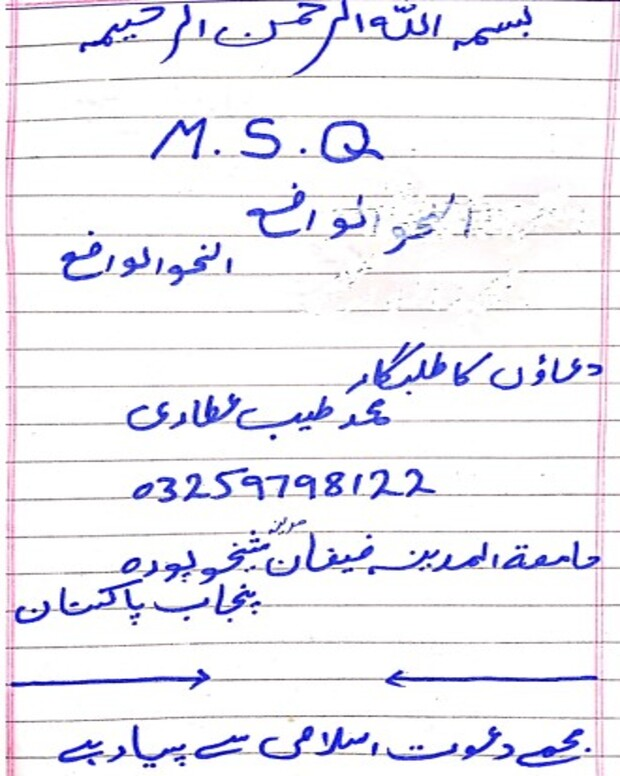 بسم اللہ الرحمن الرحیم
M.S.Q
النحو الواضح
النحو الواضح
دعاؤں کا طلبگار
محمد طیب عطاری
03259798122
جامعۃ المدینہ فیضان مدینہ شیخوپورہ
پنجاب پاکستان
مجھے دعوت اسلامی سے پیار ہے